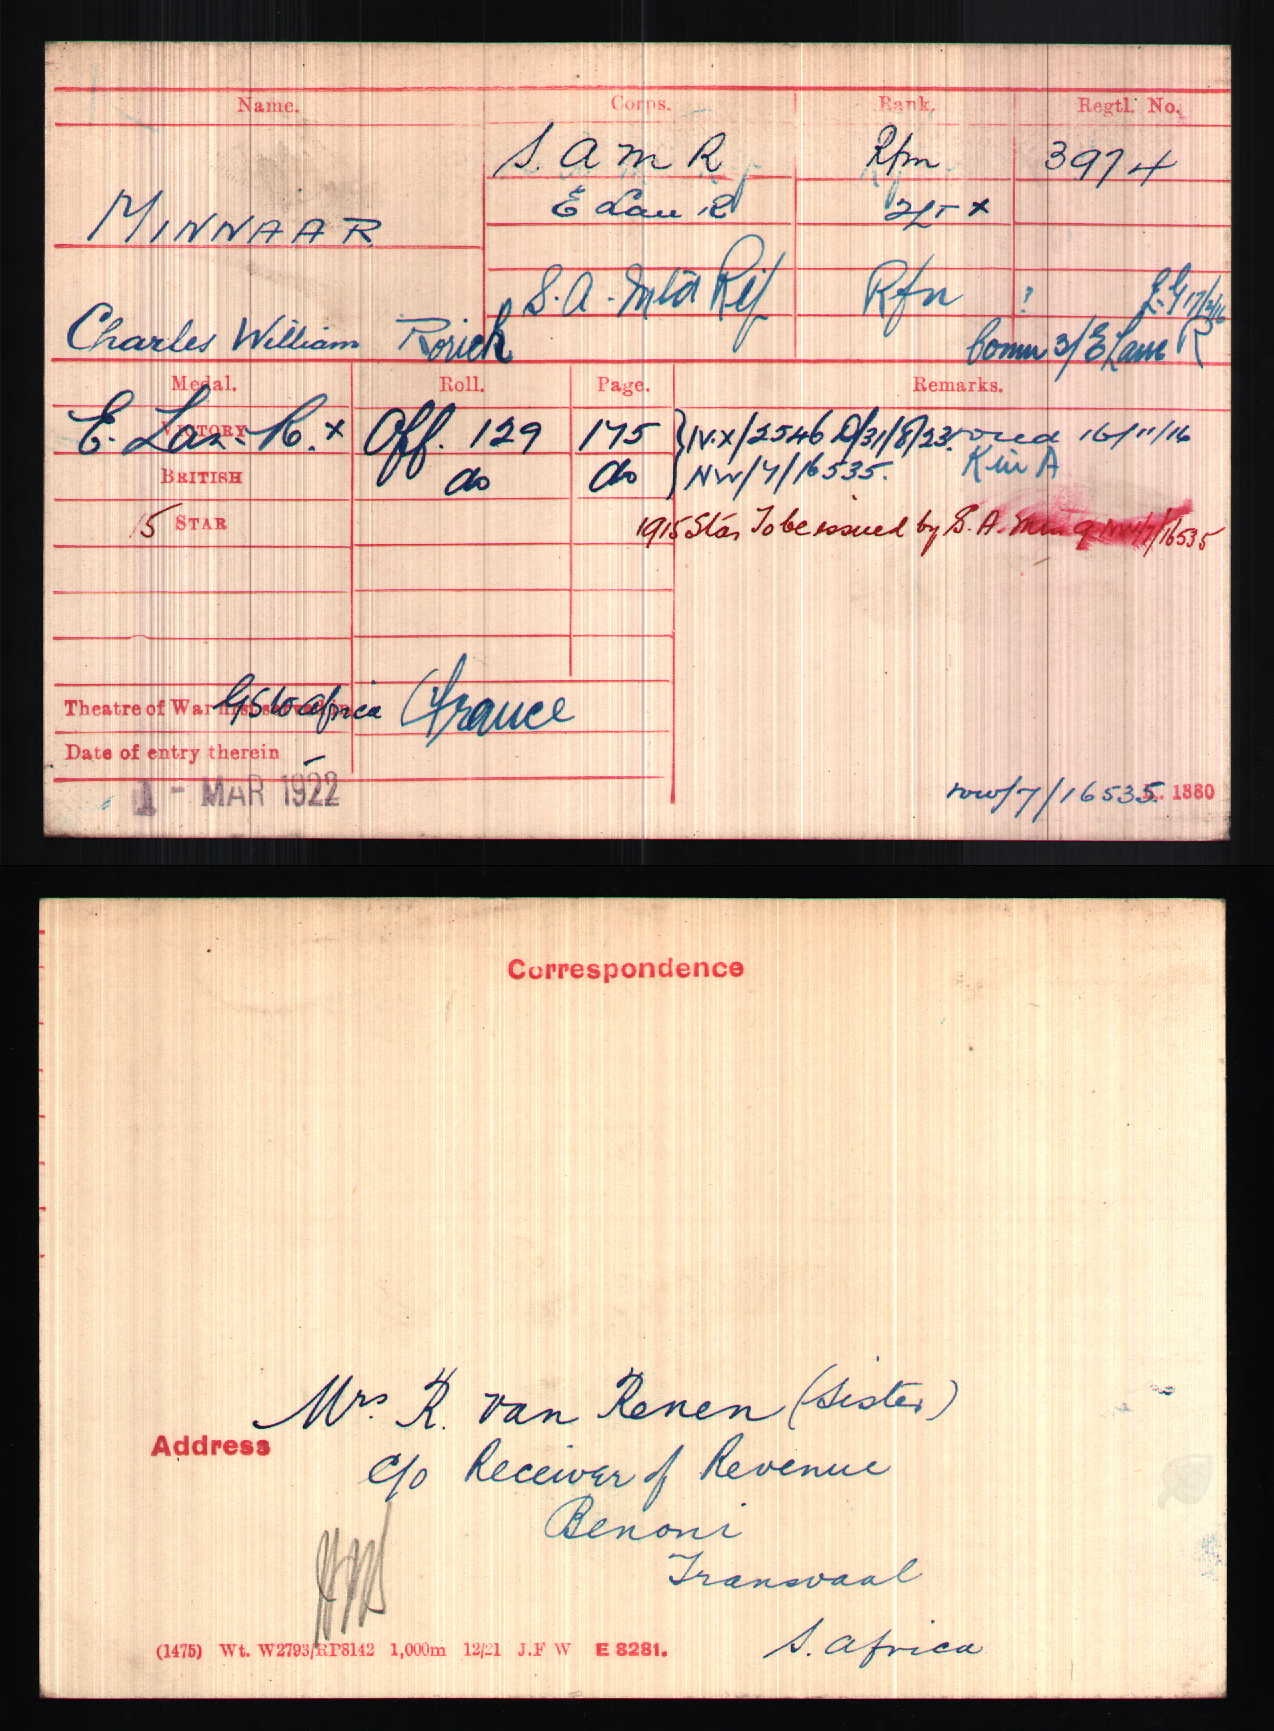 Name. Corps. Rank. Regtl. No.
S. A M R Rfm 3974
MINNAAR E Lan R 2LT x
S.A. Mtd Rif Rfn ? L.G 17/2/16
Charles William Rorich Comm 3/E Lanc R
Medal. Roll. Page. Remarks.
VICTORY E. Lan. R. x Off. 129 175 } IV.X/2546 D/31/8/23 16/11/16
BRITISH do do NW/7/16535. K in A
15 STAR 1915 Star To be issued by S.A. NW/7/16535
Theatre of War G S W Africa (France
Date of entry therein -
1 - MAR 1922 NW/7/16535. K. 1380
Correspondence
Mrs. R. van Renen (Sister)
Address
c/o Receiver of Revenue
Benoni
Transvaal
(1475) Wt. W2793/RP8142 1,000m 12/21 J.F W E 8281.
S. Africa